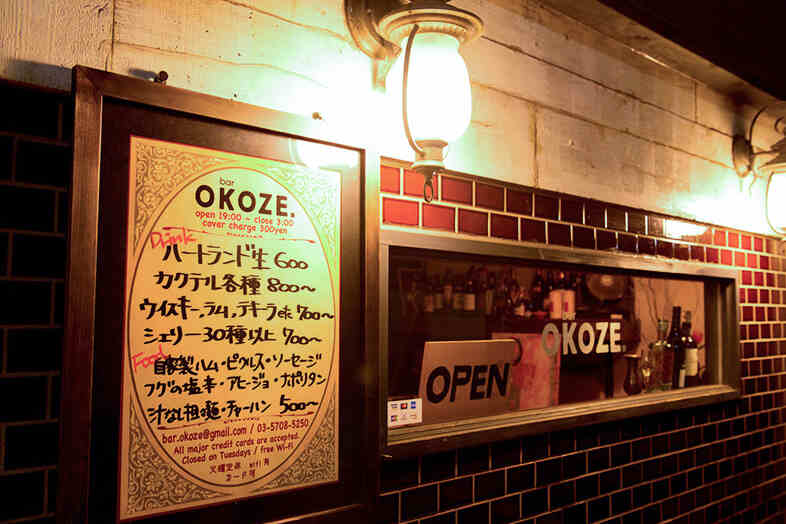 bar
OKOZE.
open 19:00 ~ close 3:00
cover charge 300yen
Drink
ハートランド生 600
カクテル各種 800〜
ウイスキー,ラム,テキーラetc 700〜
シェリー30種以上 700〜
Food
自家製ハム・ピクルス・ソーセージ
フグの塩辛・アヒージョ・ナポリタン
汁なし担麺・チャーハン 500〜
bar.okoze@gmail.com / 03-5708-5250
All major credit cards are accepted.
Closed on Tuesdays / free Wi-Fi
火曜定休 wifi有
カード可
OPEN
bar
OKOZE.